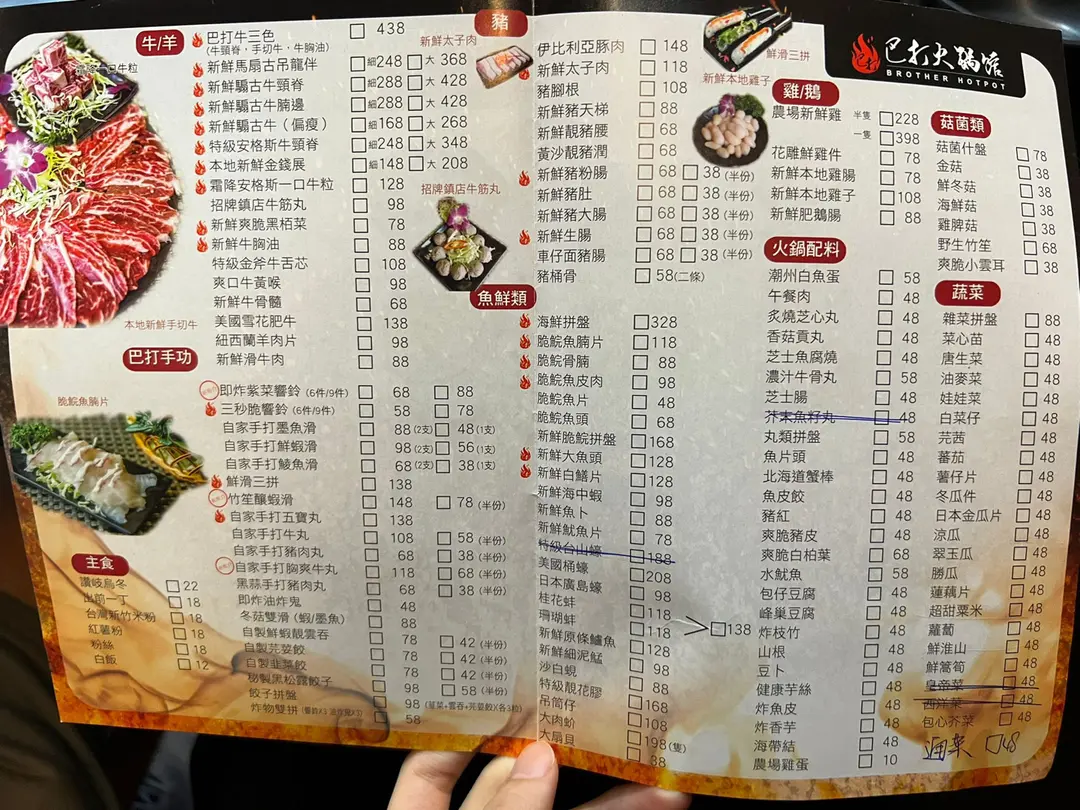 牛/羊
巴打牛三色 438
(牛頸脊，手切牛，牛胸油)
新鮮馬扇古吊龍伴 細248 大 368
新鮮騸古牛頸脊 288 大 428
新鮮騸古牛腩邊 288 大 428
新鮮騸古牛（偏瘦） 細168 大 268
特級安格斯牛頸脊 細248 大 348
本地新鮮金錢展 細148 大 208
霜降安格斯一口牛粒 128
招牌鎮店牛筋丸 98
新鮮爽脆黑栢菜 78
新鮮牛胸油 88
特級金斧牛舌芯 108
爽口牛黃喉 98
新鮮牛骨髓 68
美國雪花肥牛 138
紐西蘭羊肉片 98
新鮮滑牛肉 88
一口牛粒
本地新鮮手切牛
招牌鎮店牛筋丸
巴打手功
即炸紫菜響鈴 (6件/9件) 68 88
三秒脆響鈴 (6件/9件) 58 78
自家手打墨魚滑 88(2支) 48(1支)
自家手打鮮蝦滑 98(2支) 56(1支)
自家手打鯪魚滑 68(2支) 38(1支)
鮮滑三拼 138
竹笙釀蝦滑 148 78 (半份)
自家手打五寶丸 138
自家手打牛丸 108 58 (半份)
自家手打豬肉丸 68 38 (半份)
自家手打胸爽牛丸 118 68 (半份)
黑蒜手打豬肉丸 68 38 (半份)
即炸油炸鬼 48
冬菇雙滑 (蝦/墨魚) 88
自製鮮蝦靚雲吞 78 42 (半份)
自製芫荽餃 78 42 (半份)
自製韭菜餃 78 42 (半份)
秘製黑松露餃子 98 58 (半份)
餃子拼盤 98
炸物雙拼 58
脆浣魚腩片
主食
讚岐烏冬 22
出前一丁 18
台灣新竹米粉 18
紅薯粉 18
粉絲 18
白飯 12
豬
新鮮太子肉
伊比利亞豚肉 148
新鮮太子肉 118
豬腳根 108
新鮮豬天梯 88
新鮮靚豬腰 68
黃沙靚豬潤 68
新鮮豬粉腸 68 38 (半份)
新鮮豬肚 68 38 (半份)
新鮮豬大腸 68 38 (半份)
新鮮生腸 68 38 (半份)
車仔面豬腸 68 38 (半份)
豬桶骨 58(二條)
魚鮮類
海鮮拼盤 328
脆浣魚腩片 118
脆浣骨腩 88
脆浣魚皮肉 98
脆浣魚片 48
脆浣魚頭 68
新鮮脆浣拼盤 168
新鮮大魚頭 128
新鮮白鱔片 128
新鮮海中蝦 98
新鮮魚卜 88
新鮮魷魚片 78
特級台山蠔 188
美國桶蠔 208
日本廣島蠔 98
桂花蚌 118
珊瑚蚌 118
新鮮原條鱸魚 138
新鮮細泥鯭 128
沙白蜆 98
特級靚花膠 88
吊筒仔 168
大肉蚧 108
大扇貝 198(隻)
38
鮮滑三拼
新鮮本地雞子
巴打火鍋
BROTHER HOTPOT
雞/鵝
農場新鮮雞 半隻 228
一隻 398
花雕鮮雞件 78
新鮮本地雞腸 78
新鮮本地雞子 108
新鮮肥鵝腸 88
火鍋配料
潮州白魚蛋 58
午餐肉 48
炙燒芝心丸 48
香菇貢丸 48
芝士魚腐燒 48
濃汁牛骨丸 58
芝士腸 48
芥末魚籽丸 48
丸類拼盤 58
魚片頭 48
北海道蟹棒 48
魚皮餃 48
豬紅 48
爽脆豬皮 48
爽脆白柏葉 68
水魷魚 58
包仔豆腐 48
峰巢豆腐 48
炸枝竹 48
山根 48
豆卜 48
健康芋絲 48
炸魚皮 48
炸香芋 48
海帶結 48
農場雞蛋 10
菇菌類
菇菌什盤 78
金菇 38
鮮冬菇 38
海鮮菇 38
雞脾菇 38
野生竹笙 68
爽脆小雲耳 38
蔬菜
雜菜拼盤 88
菜心苗 48
唐生菜 48
油麥菜 48
娃娃菜 48
白菜仔 48
芫茜 48
蕃茄 48
薯仔片 48
冬瓜件 48
日本金瓜片 48
涼瓜 48
翠玉瓜 48
勝瓜 48
蓮藕片 48
超甜粟米 48
蘿蔔 48
鮮淮山 48
鮮窩筍 48
皇帝菜 48
西洋菜 48
包心芥菜 48
48